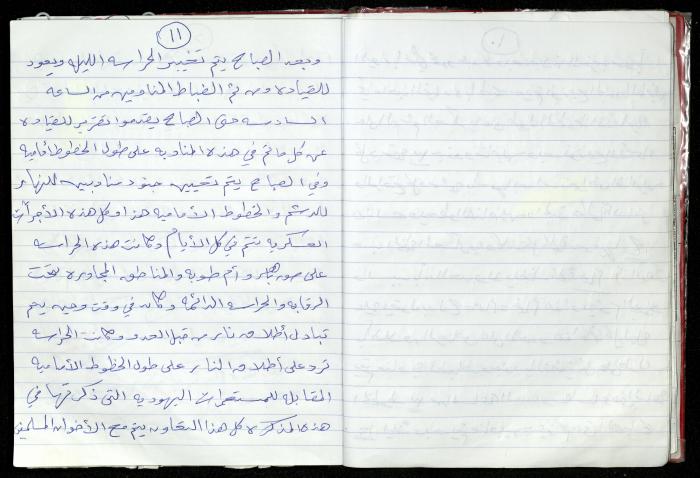 ١١
وبعد الصباح يتم تغيير الحراسه الليله ويعود
للقياده ومن ثم الضباط المناوبين من الساعه
السادسه حتى الصباح يقدموا تقرير للقياده
عن كل ما تم في هذه المناوبه على طول الخطوط الأماميه
وفى الصباح يتم تعيين جنود مناوبين للنهار
للدشم والخطوط الأماميه هذا وكل هذه الأجراأت
العسكريه تتم في كل الأيام وكانت هذه الحراسه
على صور باهر وأم طوبه والمناطق المجاوره تحت
الرقابه والحراسه الدائمه وكان في وقت وحين يتم
تبادل أطلاق نار من قبل العدو وكانت الحراسه
ترد على أطلاق النار على طول الخطوط الأماميه
المقابله للمستعمرات اليهوديه التى ذكرتها في
هذه المذكره كل هذا التعاون يتم مع الأخوان المسلمين
١٠